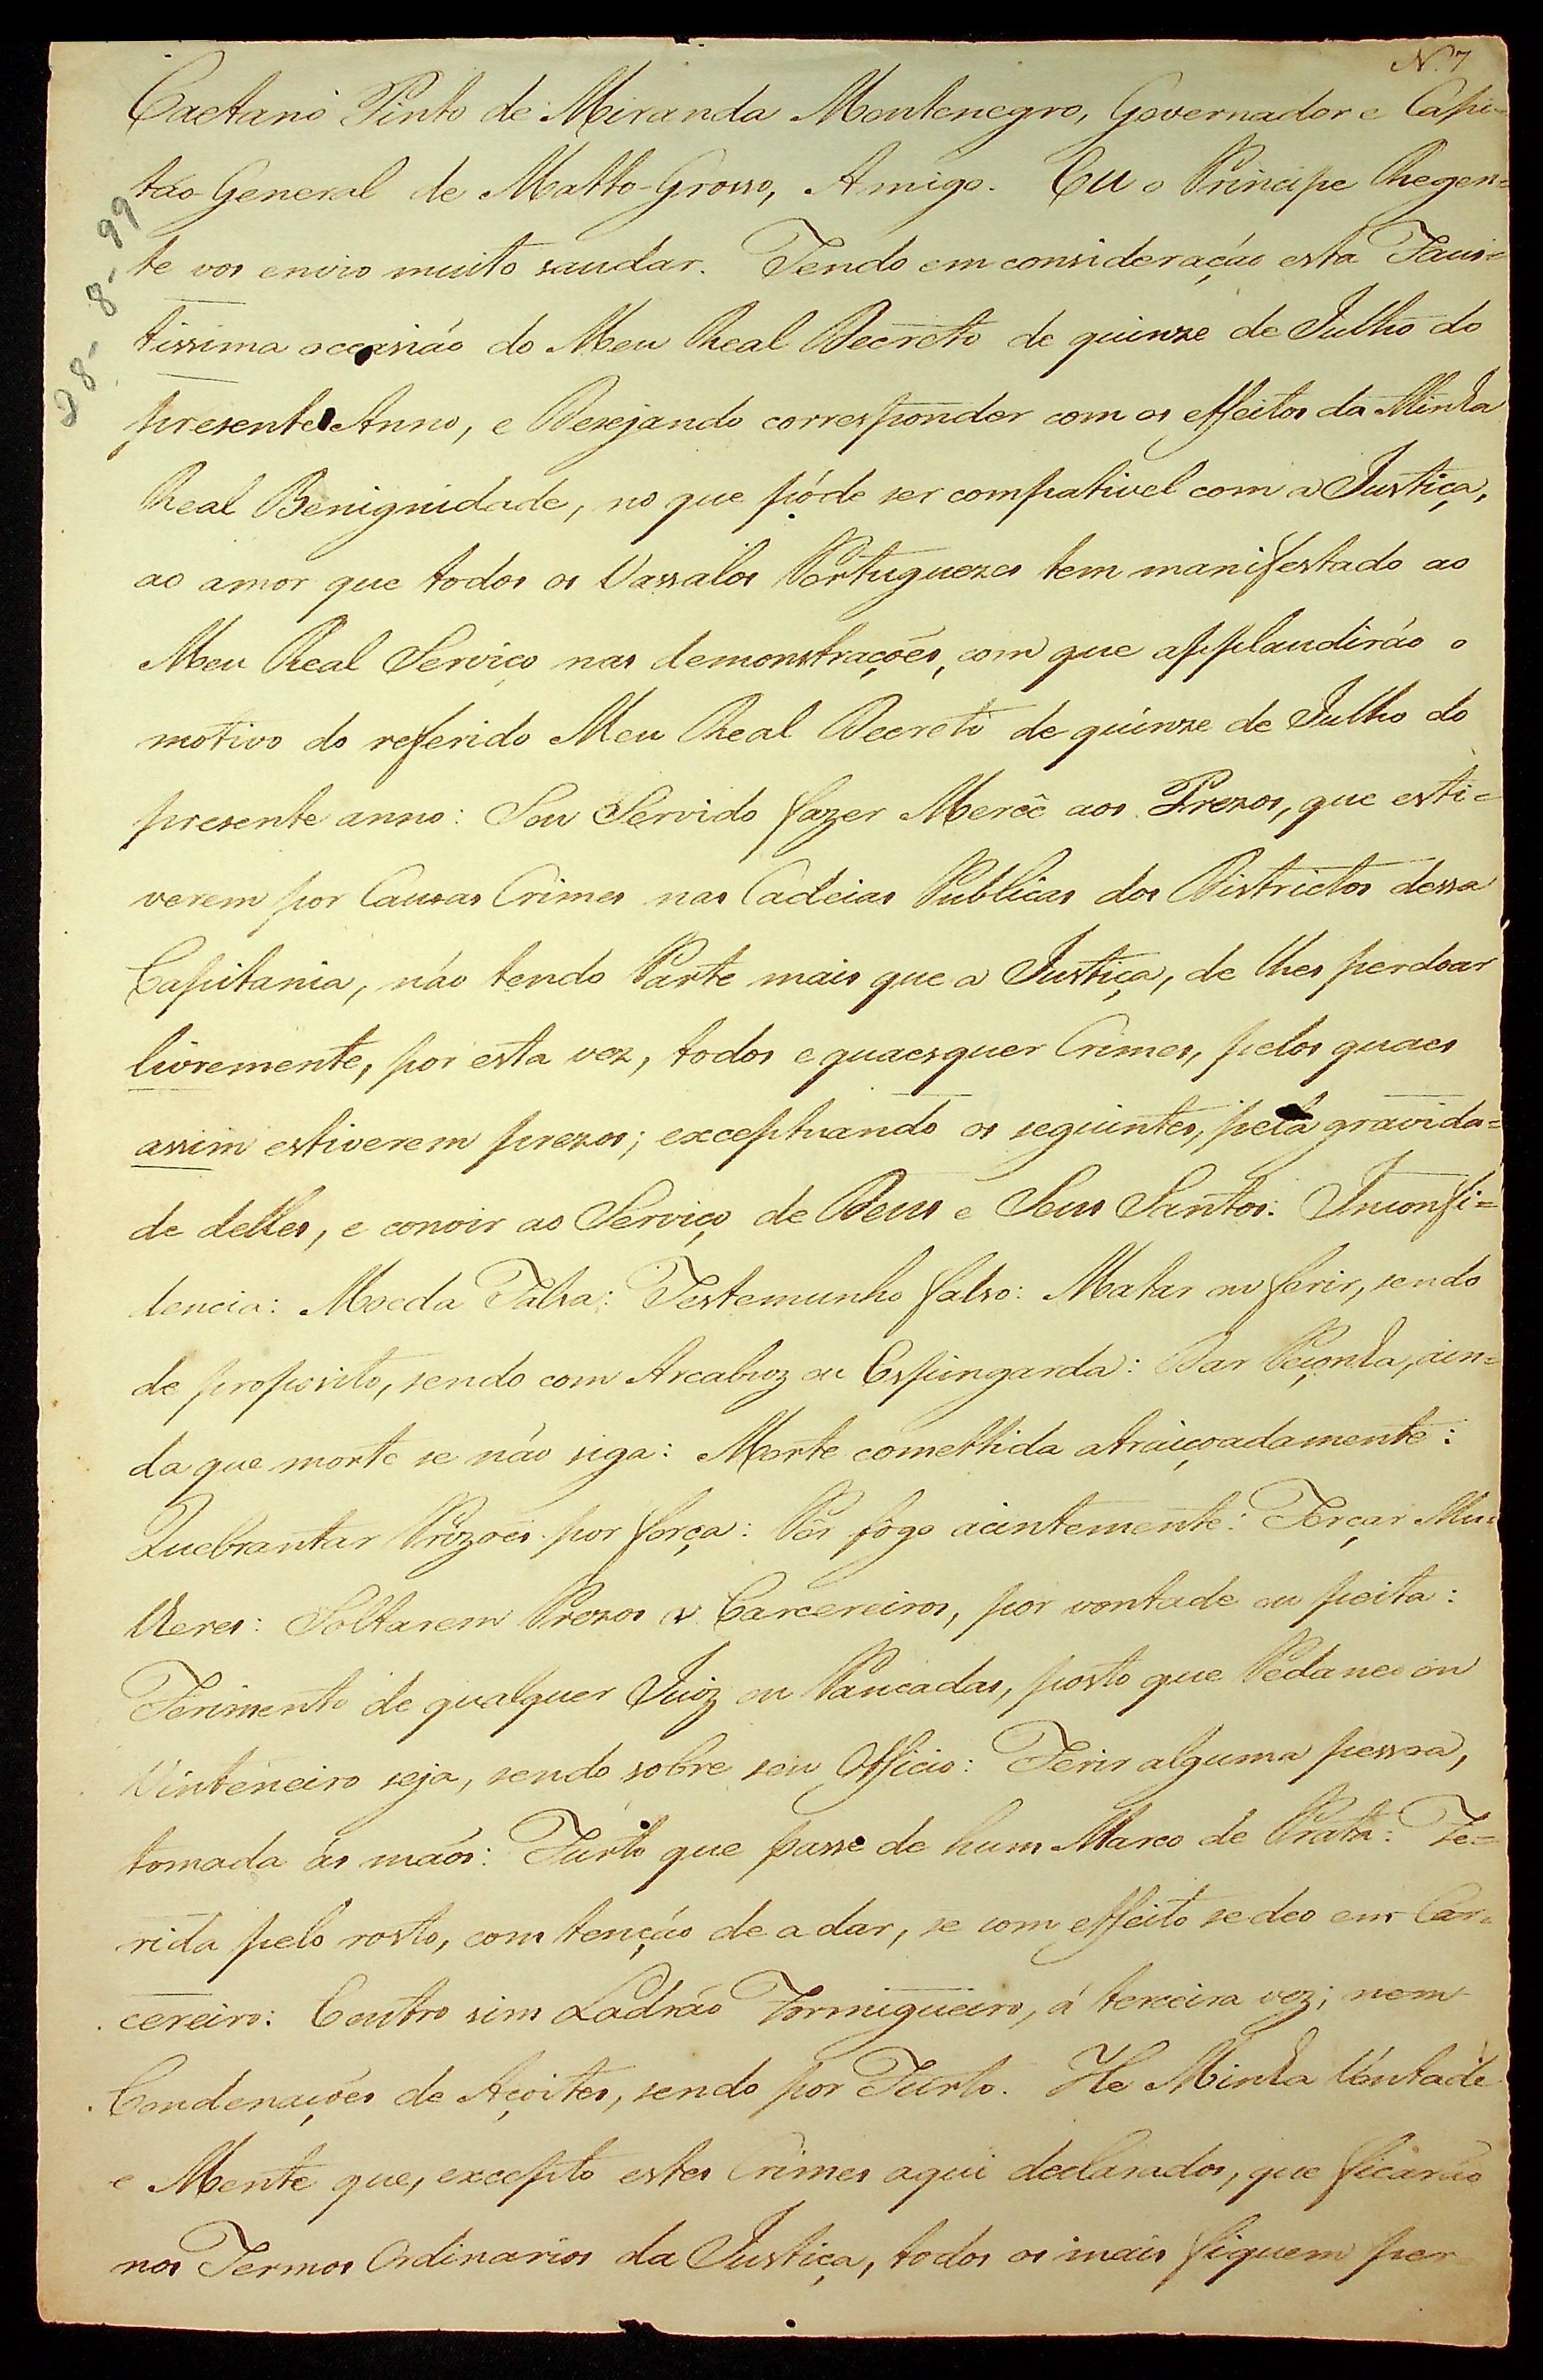 N.7
Caetano Pinto de Miranda Montenegro, Governador e Capi-
tão General de Matto-Grosso, Amigo. EU o Principe Regen=
te vos envio muito saudar. Tendo em consideração esta Faus=
tissima occasião do Meu Real Decreto de quinze de Julho do
presente Anno, e Desejando corresponder com os effeitos da Minha
Real Benignidade, no que póde ser compativel com a Justiça,
ao amor que todos os Vassalos Portuguezes tem manifestado ao
Meu Real Serviço nas demonstrações, com que applaudirão o
motivo do referido Meu Real Decreto de quinze de Julho do
presente anno: Sou Servido fazer Mercê aos Prezos, que esti=
verem por Causas Crimes nas Cadeias Publicas dos Districtos dessa
Capitania, não tendo Parte mais que a Justiça, de lhes perdoar
livremente, por esta vez, todos e quaesquer Crimes, pelos quaes
assim estiverem prezos; exceptuando os seguintes, pela gravida=
de delles, e convir ao Serviço de Deus e Seus Santos: Inconfi=
dencia: Moeda Falsa: Testemunho falso: Matar ou ferir, sendo
de proposito, sendo com Arcabuz ou Espingarda: Dar Peçonha, ain=
da que morte se não siga: Morte comettida atraiçoadamente:
Quebrantar Prizoēs por força: Pôr fôgo acintemente: Forçar Mu=
lheres: Soltarem Prezos os Carcereiros, por vontade ou peita:
Ferimento de qualquer Juiz ou Pancadas, posto que Pedaneo ou
Vinteneiro seja, sendo sobre seu Officio: Ferir alguma pessoa,
tomada ás mãos: Furto que passe de hum Marco de Prata: Fe=
rida pelo rosto, com tenção de a dar, se com effeito se deo em Car=
cereiro: E outro sim Ladrão Formigueiro, á terceira vez; nem
Condenações de Açoites, sendo por Furto. He Minha Vontade
e Mente que, excepto estes Crimes aqui declarados, que ficarão
nos Termos Ordinarios da Justiça, todos os mais fiquem per
28-8-99